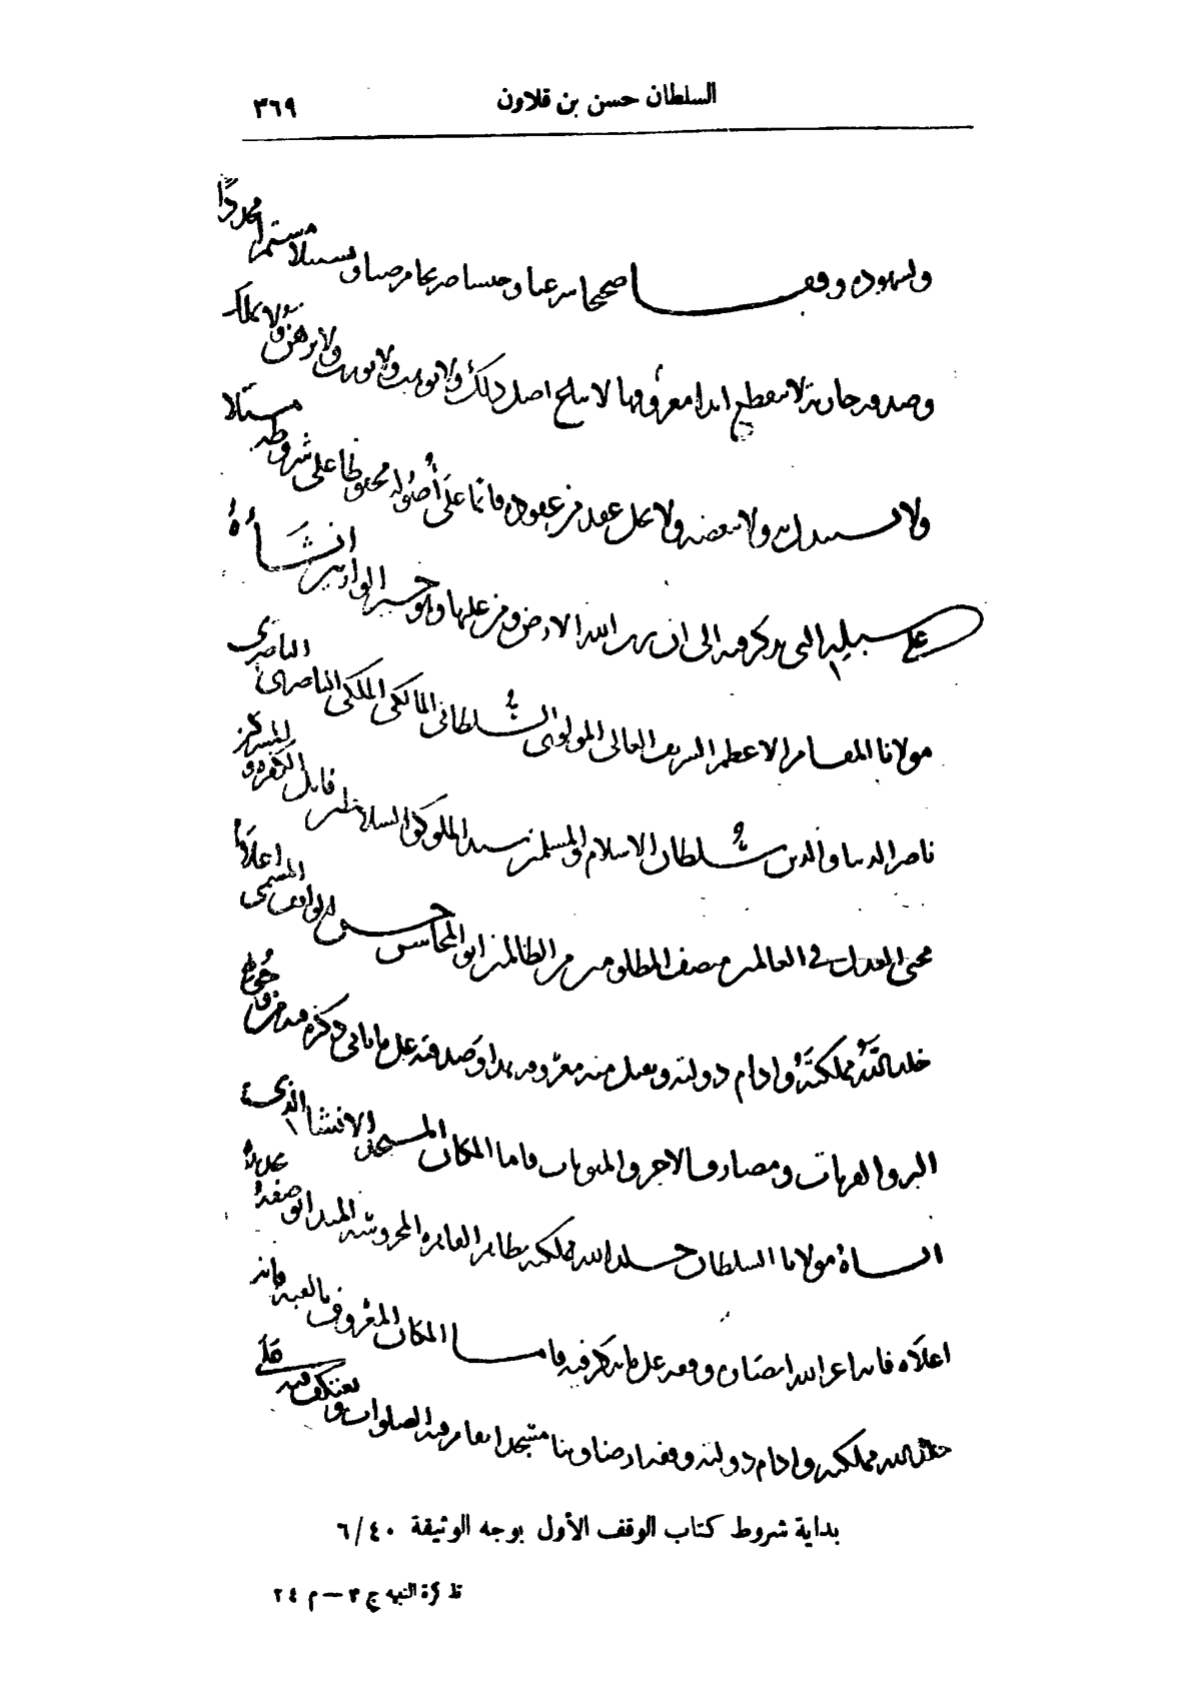 السلطان حسن بن قلاون
٣٦٩
وقفا صحيحا شرعيا وحبسا صريحا مرضيا وتسبيلا مستمرا
وصدقة جارية لا ينقطع ابدا معروفها لا يباح اصل ذلك ولا يوهب ولا يورث ولا يرهن ولا يملك
ولا يستبدل به ولا ببعضه ولا يحل عقد من عقوده قائما على أصوله محفوظا على شروطه مسبلا
على سبيله التي يذكر فيه الى ان يرث الله الارض ومن عليها وهو خير الوارثين انشأه
مولانا المقام الاعظم الشريف العالى المولوى السلطانى المالكى الملكى الناصرى
ناصر الدنيا والدين سلطان الاسلام والمسلمين سيد الملوك والسلاطين قاتل الكفرة و
محيى العدل فى العالمين منصف المظلومين من الظالمين ابو المحاسن حسن الواقف المسمى اعلاه
خلد الله مملكته وادام دولته وتقبل منه معروفه وصدقته على ما ياتى ذكره فيه من
البر والقربات ومصارف الاجر والمثوبات فاما المكان المستجد الانشا الذى
انشاه مولانا السلطان خلد الله مملكته بظاهر القاهرة المحروسة المبدا بوصفه
اعلاه فانه اعز الله انصاره وقفه على ما يذكر فيه فاما المكان المعروف بالقبة فانه
خلد الله مملكته وادام دولته وقفه ارضا وبنا مسجدا تقام فيه الصلوات ويعتكف فيه على
بداية شروط كتاب الوقف الأول بوجه الوثيقة ٦/٤٠
تذكرة النبيه ج ٣ – م ٢٤